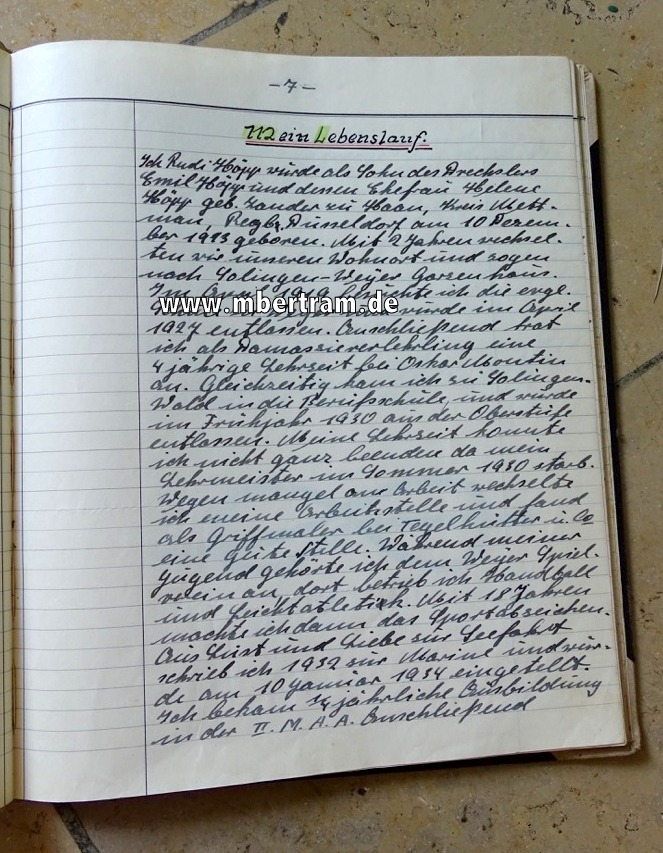 -7-
Mein Lebenslauf.
Ich Rudi Höpp wurde als Sohn des Drechslers
Emil Höpp und dessen Ehefrau Helene
Höpp geb. Zander zu Haan, Kreis Mett-
man, Regbz. Düsseldorf am 10 Dezem-
ber 1913 geboren. Mit 2 Jahren wechsel-
ten wir unseren Wohnort und zogen
nach Solingen-Weyer Garzenhaus.
Im 1919 besuchte ich die evgl.
www.mbertram.de
wurde im April
1927 entlassen. Anschließend trat
ich als Damassierlehrling eine
4 jährige Lehrzeit bei Oskar Montin
an. Gleichzeitig kam ich zu Solingen-
Wald in die Berufsschule, und wurde
im Frühjahr 1930 aus der Oberstufe
entlassen. Meine Lehrzeit konnte
ich nicht ganz beenden da mein
Lehrmeister im Sommer 1930 starb.
Wegen mangel an Arbeit wechselte
ich meine Arbeitsstelle und fand
als Griffmaler bei Tegelhütter u. Co
eine gute Stelle. Während meiner
Jugend gehörte ich dem Weyer Spiel-
verein an, dort betrieb ich Handball
und Leichtatletick. Mit 18 Jahren
machte ich dann das Sportabzeichen.
Aus Lust und Liebe zur Seefahrt
schrieb ich 1932 zur Marine und wur-
de am 10 Januar 1934 eingestellt.
Ich bekam 3/4 jährliche Ausbildung
in der II. M. A. A. Anschließend